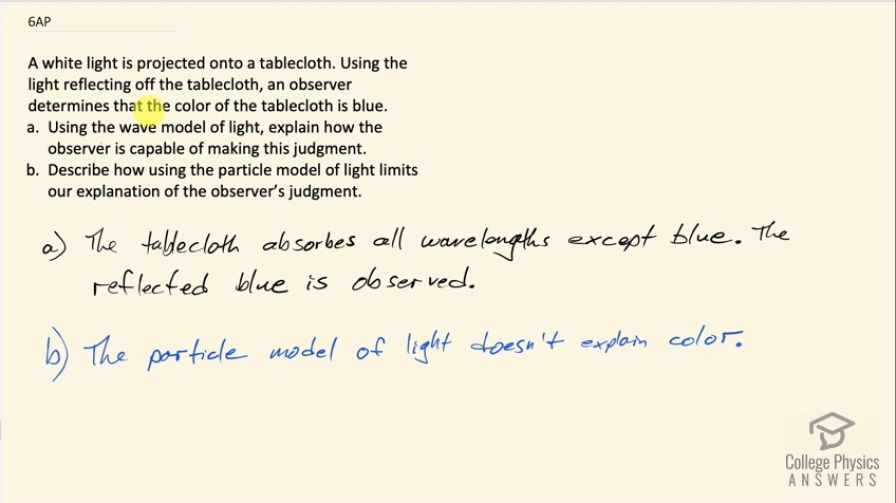 6AP
A white light is projected onto a tablecloth. Using the
light reflecting off the tablecloth, an observer
determines that the color of the tablecloth is blue.
a. Using the wave model of light, explain how the
observer is capable of making this judgment.
b. Describe how using the particle model of light limits
our explanation of the observer's judgment.
a) The tablecloth absorbes all wavelengths except blue. The
reflected blue is observed.
b) The particle model of light doesn't explain color.
College Physics
ANSWERS